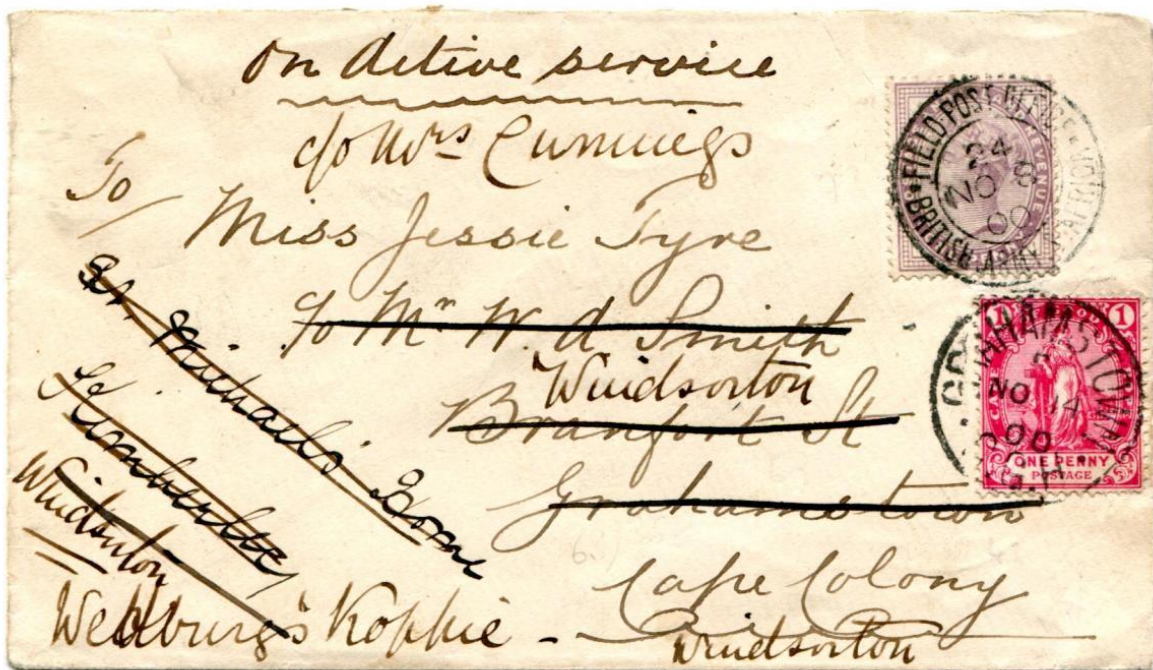 On Active service
c/o Mrs Cummings
To
Miss Jessie Tyre
c/o Mr W. A Smith
Windsorton
Branfort St
Grahamstown
Cape Colony
Windsorton
St. Michael's Home
Kimberley
Windsorton
Wedburg's Koppie -
FIELD POST OFFICE
BRITISH ARMY S. AFRICA
24
NO 8
00
GRAHAMSTOWN
NO 14
00
1
ONE PENNY
POSTAGE